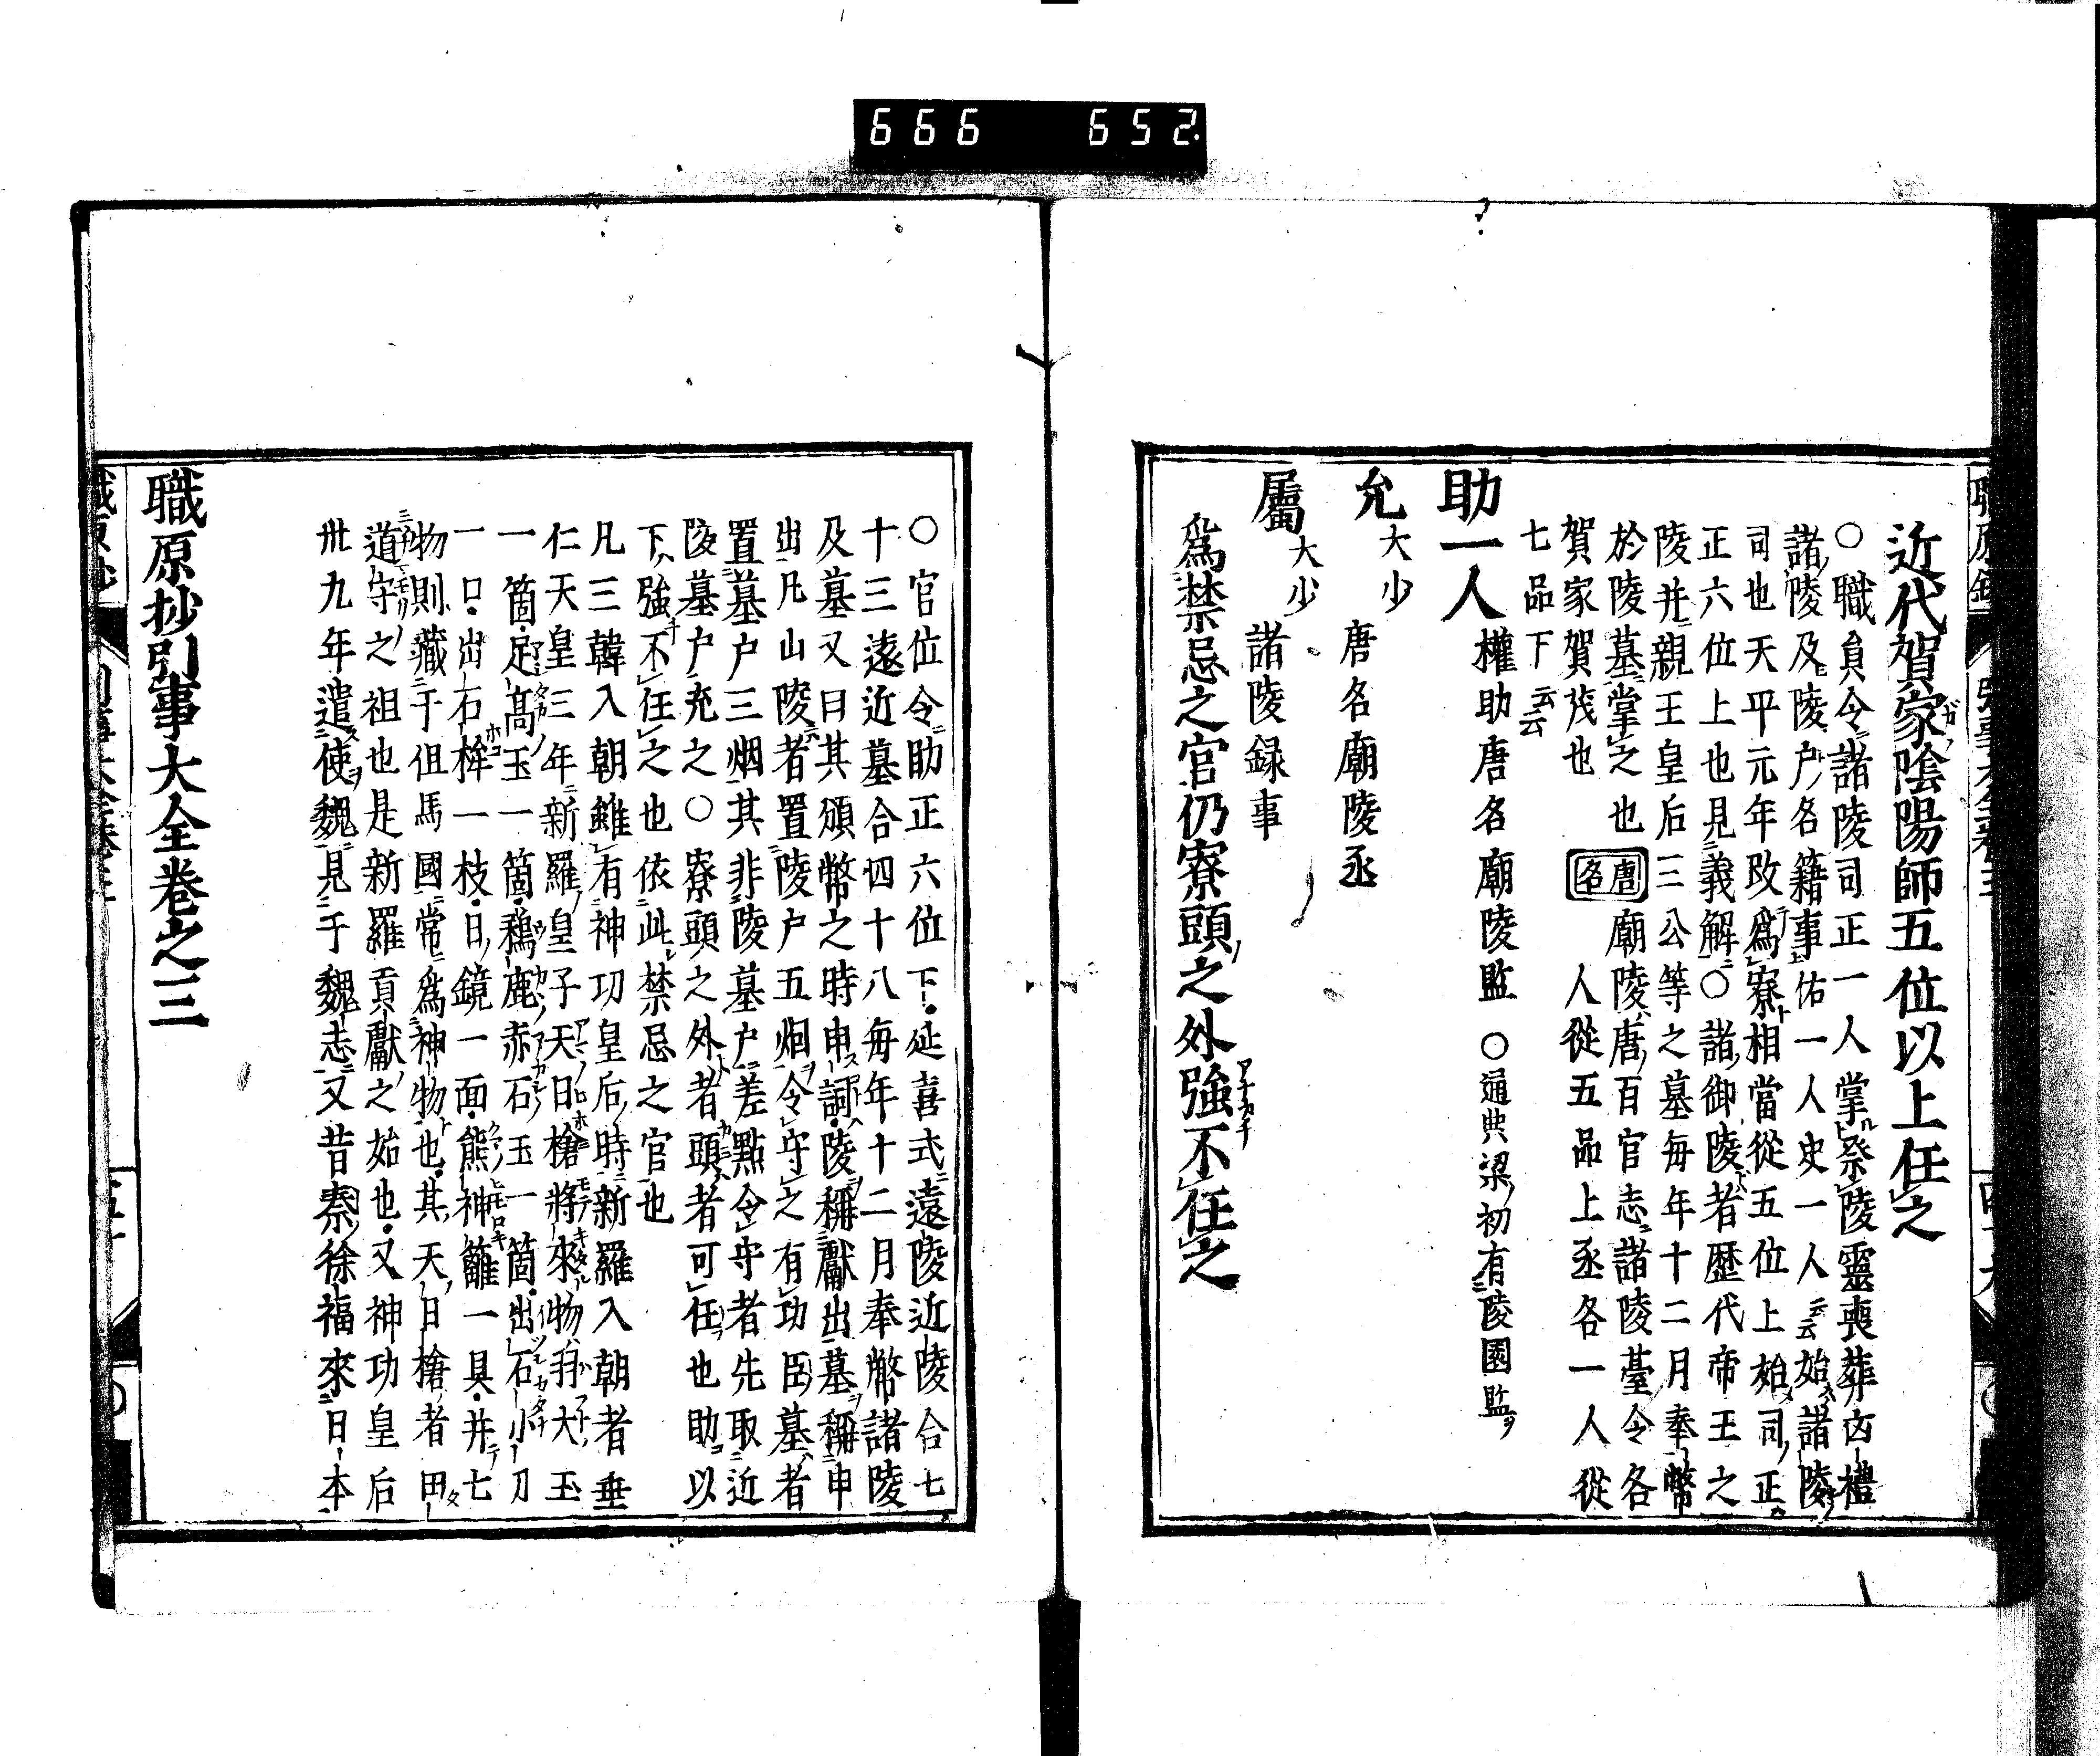 666 652
近代賀家陰陽師五位以上任之
○職員令諸陵司正一人掌祭陵靈喪葬凶禮
諸陵及陵戶名籍事佑一人史一人云云始諸陵
司也天平元年改爲寮相當從五位上始司正
正六位上也見義解○諸御陵者歴代帝王之
陵并親王皇后三公等之墓毎年十二月奉幣
於陵墓掌之也 唐名 廟陵唐百官志諸陵臺令各
賀家賀茂也 人從五品上丞各一人從
七品下云云
助一人 權助唐名廟陵監 ○通典梁初有陵園監
允 大少 唐名廟陵丞
屬 大少 諸陵録事
爲禁忌之官仍寮頭之外強不任之
○官位令助正六位下延喜式遠陵近陵合七
十三遠近墓合四十八毎年十二月奉幣諸陵
及墓又曰其頒幣之時申詞陵稱獻出墓稱申
出凡山陵者置陵戸五烟令守之有功臣墓者
置墓戸三烟其非陵墓戸差點令守者先取近
陵墓戸充之○寮頭之外者頭者可任也助以
下強不任之也依此禁忌之官也
凡三韓入朝雖有神功皇后時新羅入朝者垂
仁天皇三年新羅皇子天日槍將來物羽大玉
一箇足高玉一箇鵜鹿赤石玉一箇出石小刀
一口出石桙一枝日鏡一面熊神籬一具并七
物則藏于但馬國常爲神物也其天日槍者田
道守之祖也是新羅貢獻之始也又神功皇后
卅九年遣使魏見于魏志又昔秦徐福來日本
職原抄引事大全卷之三